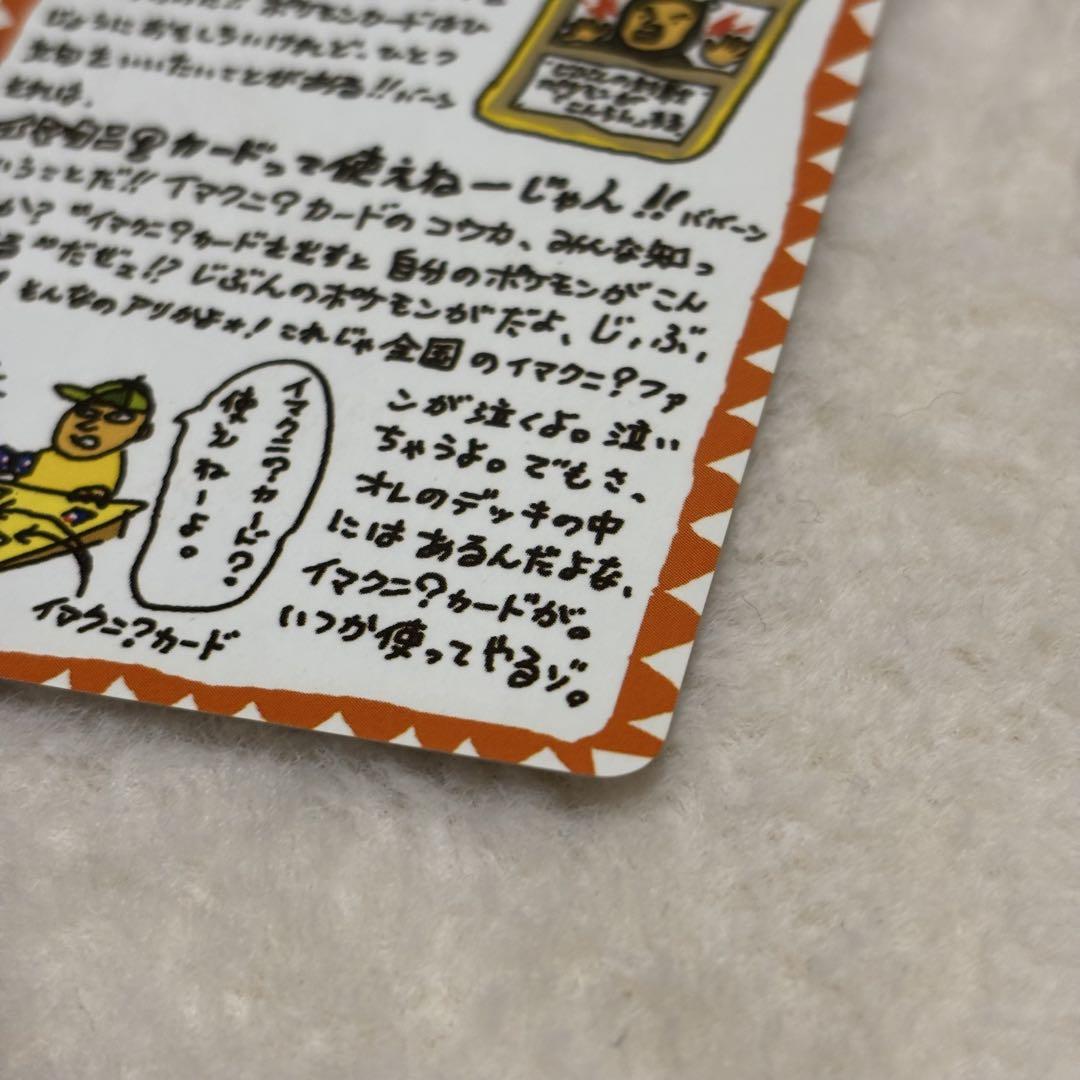 ポケモンカードはひ
じょうにおもしろいけれど、ひとつ
いいたいことがある!!バーン
それは、
カードって使えねーじゃん!!バババーン
いうことだ!!イマクニ?カードのコウカ、みんな知っ
か?"イマクニ?カードを出すと自分のポケモンがこん
る"だぜェ!?じぶんのポケモンがだよ、じ、ぶ、
そんなのアリかよォ!これじゃ全国のイマクニ?ファ
ンが泣くよ。泣い
ちゃうよ。でもさ、
オレのデッキの中
にはあるんだよな、
イマクニ?カードが。
いつか使ってやるゾ。
イマクニ?カード?
使えねーよ。
イマクニ?カード